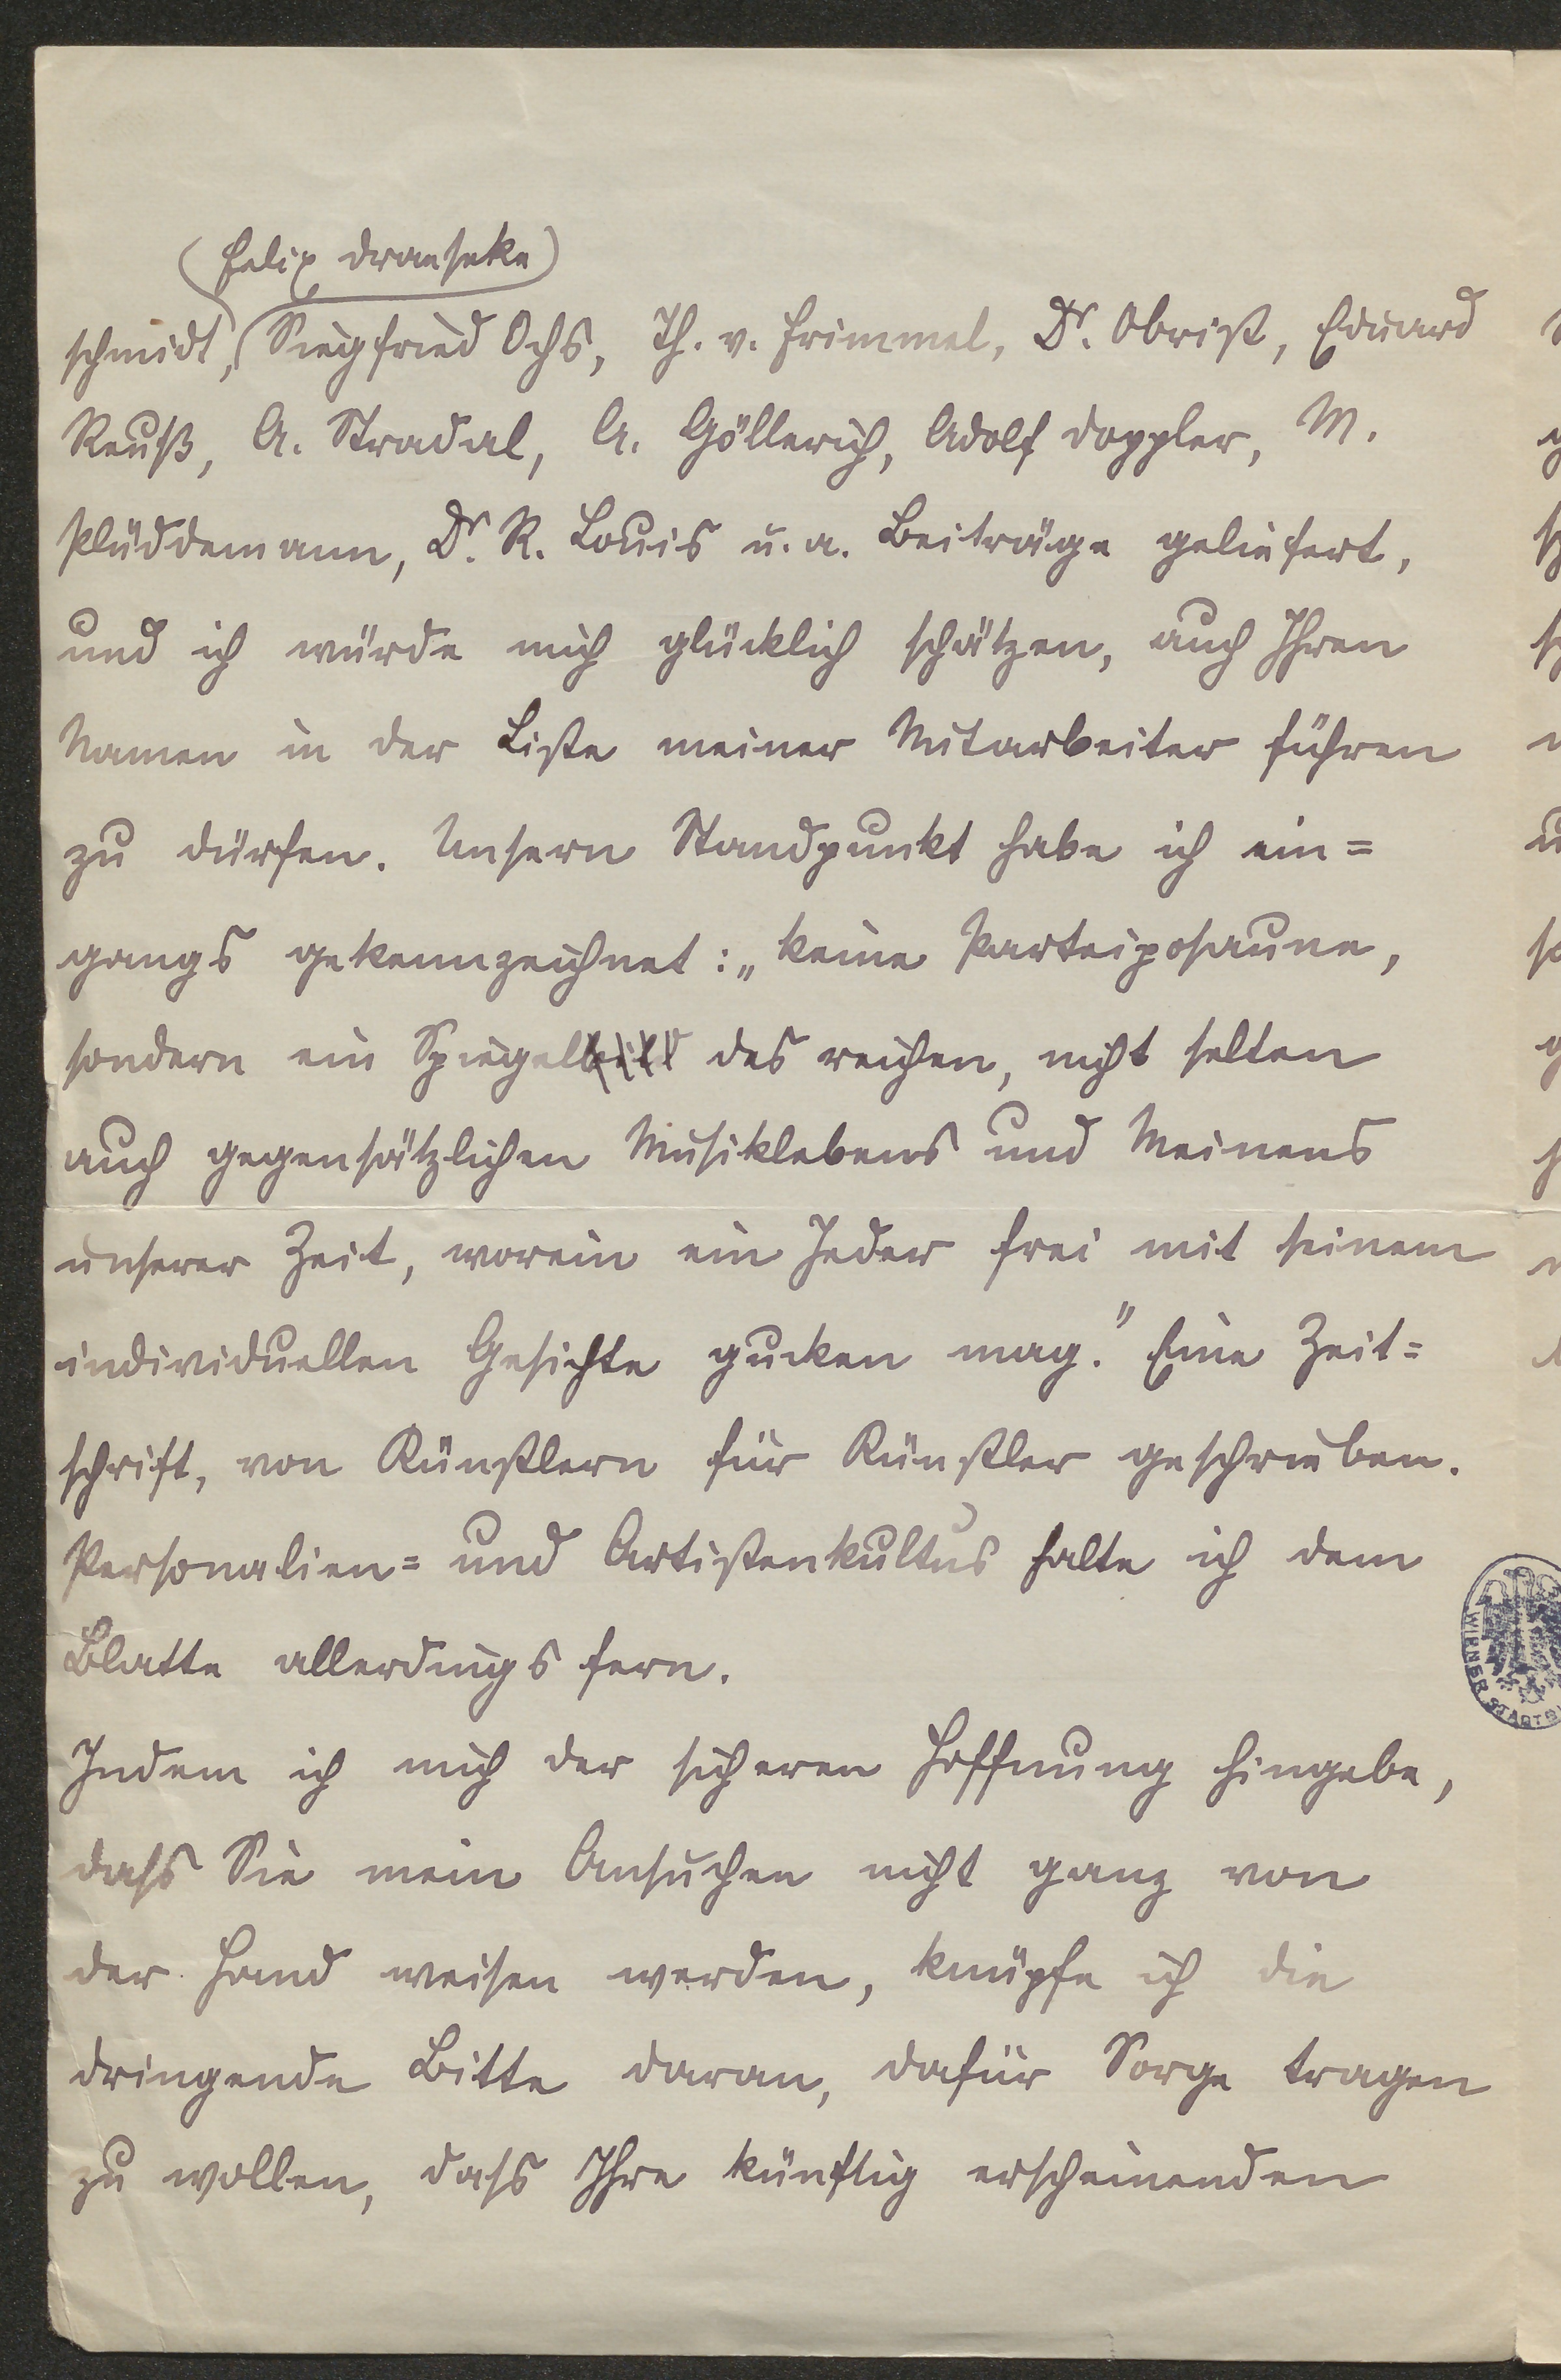 (Felix Draeseke)
schmidt, Siegfried Ochs, Th. v. Frimmel, Dr. Obrist, Eduard
Reuß, A. Stradal, A. Göllerich, Adolf Doppler, M.
Plüddemann, Dr. R. Louis u. a. Beiträge geliefert,
und ich würde mich glücklich schätzen, auch Ihren
Namen in der Liste meiner Mitarbeiter führen
zu dürfen. Unsern Standpunkt habe ich ein=
gangs gekennzeichnet: „keine Parteiposaune,
sondern ein Spiegelbild des reichen, nicht selten
auch gegensätzlichen Musiklebens und Meinens
unserer Zeit, worein ein Jeder frei mit seinem
individuellen Gesichte gucken mag." Eine Zeit=
schrift, von Künstlern für Künstler geschrieben.
Personalien= und Artistenkultus halte ich dem
Blatte allerdings fern.
WIENER STADTB
Indem ich mich der sicheren Hoffnung hingebe,
dass Sie mein Ansuchen nicht ganz von
der Hand weisen werden, knüpfe ich die
dringende Bitte daran, dafür Sorge tragen
zu wollen, dass Ihre künftig erscheinenden